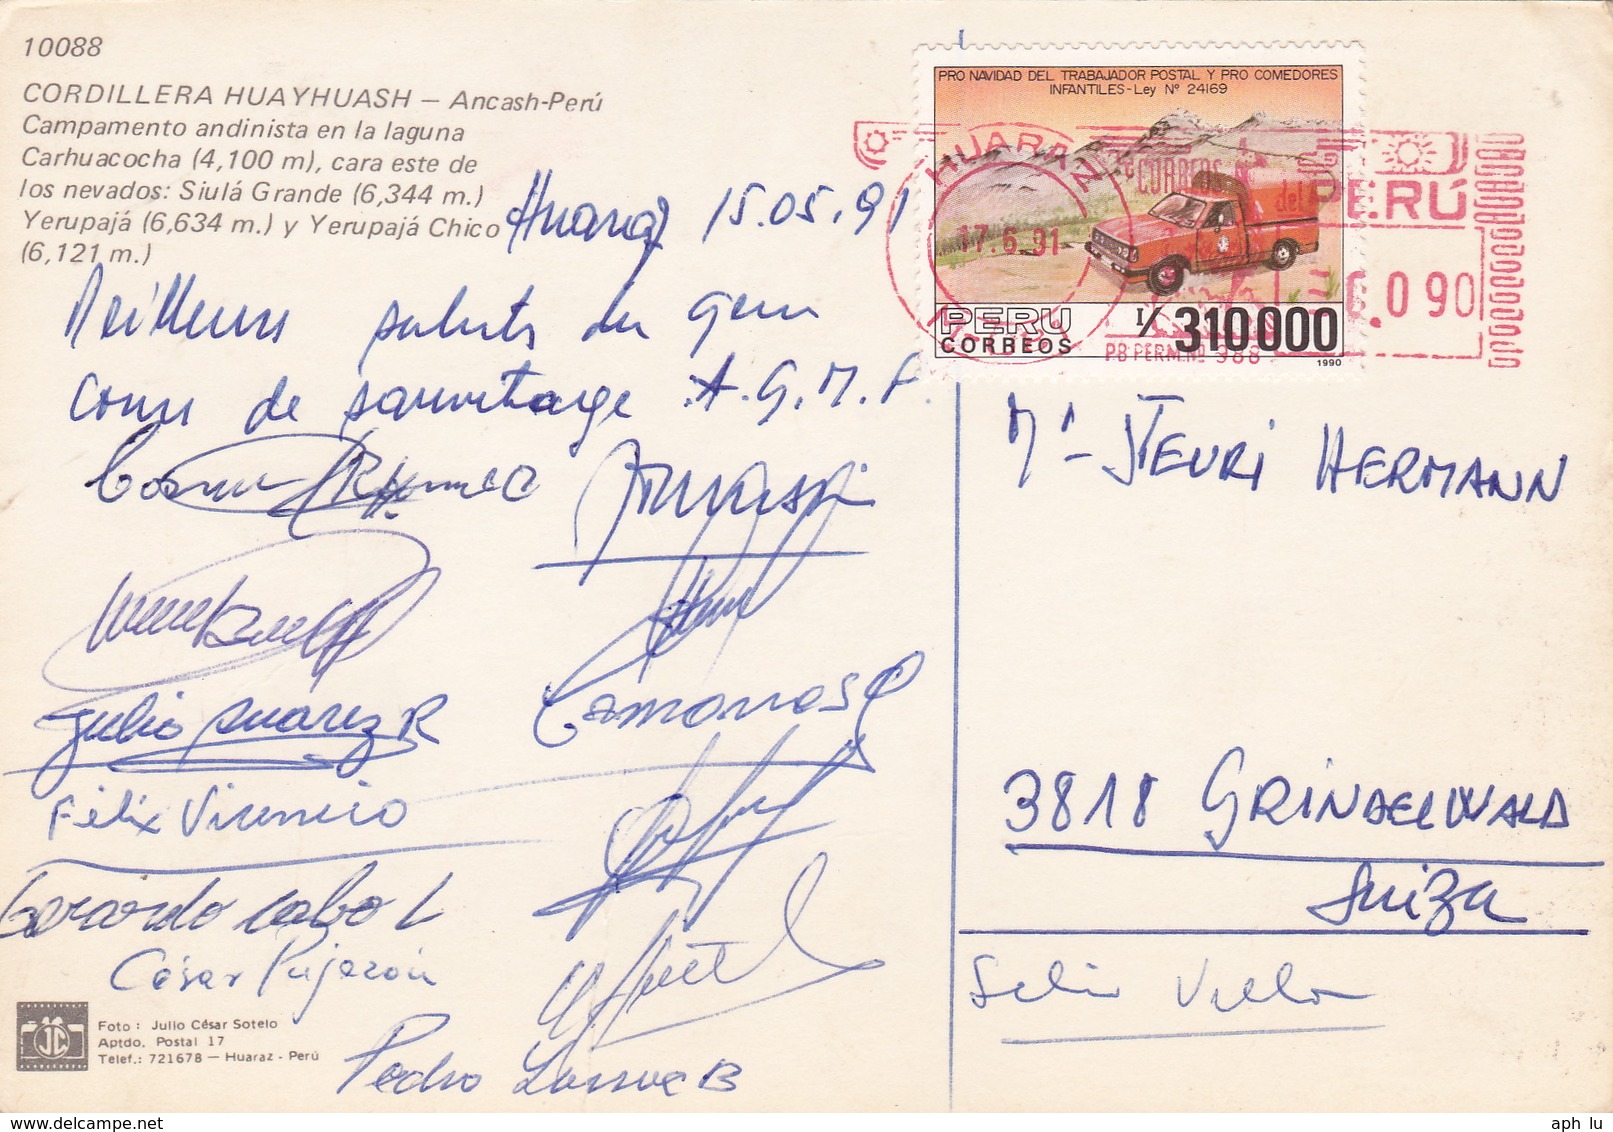 10088
CORDILLERA HUAYHUASH – Ancash-Perú
Campamento andinista en la laguna
Carhuacocha (4,100 m), cara este de
los nevados: Siulá Grande (6,344 m.)
Yerupajá (6,634 m.) y Yerupajá Chico
(6,121 m.)
Huaraz 15.05.91
Meilleurs saluts du
cours de sauvetage A.G.M.P.
Julio Suarez R
Camones
Félix Vicencio
Gerardo Cobo L
César
Pedro
Foto : Julio César Sotelo
Aptdo. Postal 17
Telef.: 721678 – Huaraz - Perú
PRO NAVIDAD DEL TRABAJADOR POSTAL Y PRO COMEDORES
INFANTILES-Ley Nº 24169
PERU
CORREOS
I/. 310000
1990
HUARAZ
17.6.91
CORREOS
del PERÚ
0 90
PB PERM. Nº 388
Mr- STEURI HERMANN
3818 GRINDELWALD
Suiza
aph lu